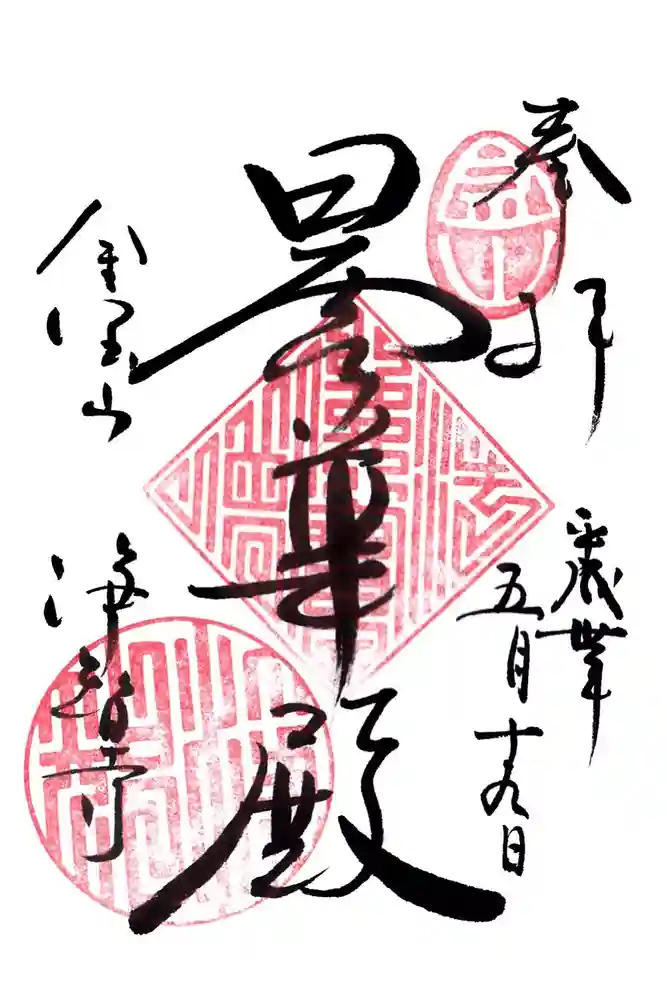 奉拝
平成丗年
五月十九日
曇華殿
金宝山
浄智寺